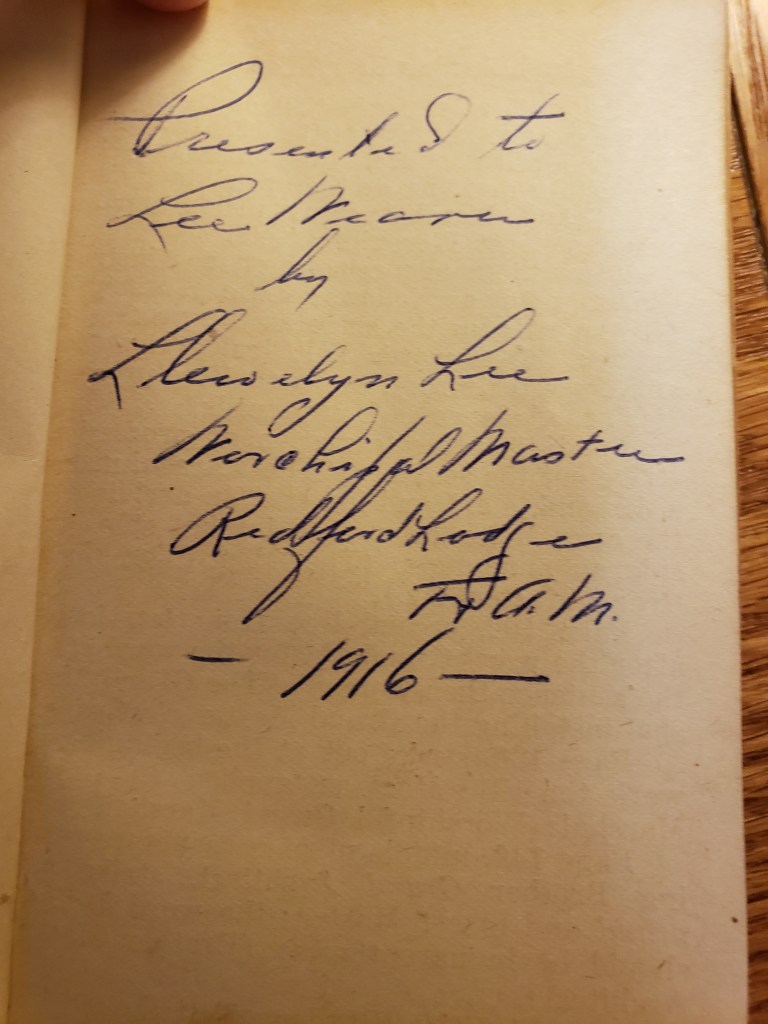 Presented to
Lee Weaver
by
Llewelyn Lee
Worshipful Master
Redford Lodge
F & A. M.
— 1916 —